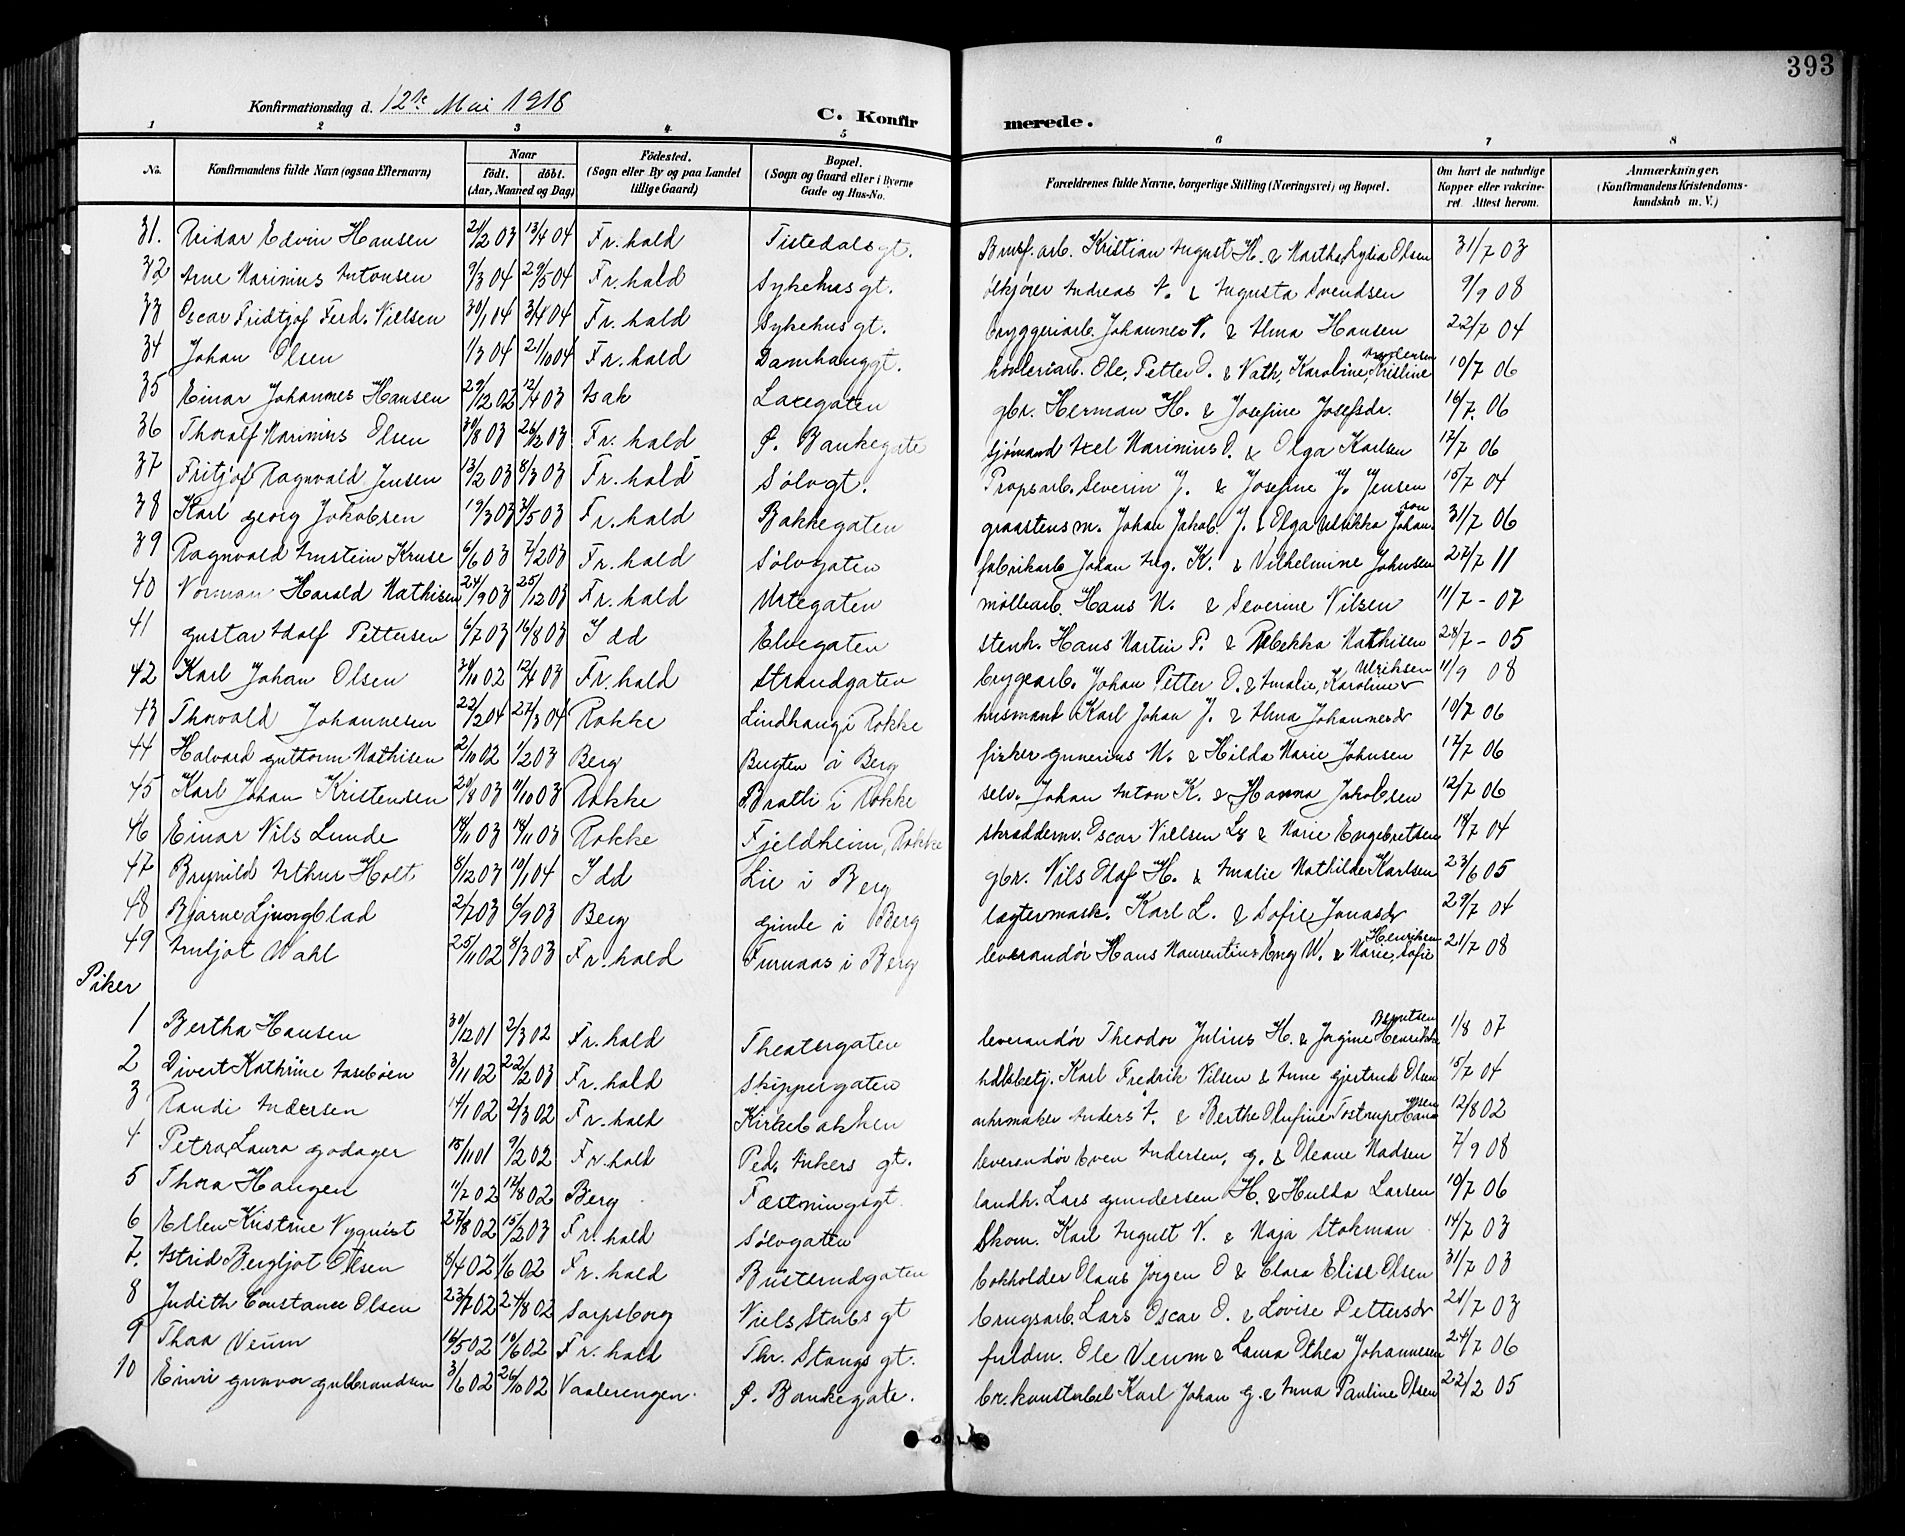 393
Konfirmationsdag d. 12te Mai 1918
C. Konfir merede.
1 2 3 4 5 6 7 8
No. Konfirmandens fulde Navn (ogsaa Efternavn) Naar födt. döbt. (Aar, Maaned og Dag) Födested. (Sogn eller By og paa Landet tillige Gaard) Bopæl. (Sogn og Gaard eller i Byerne Gade og Hus-No. Forældrenes fulde Navne, borgerlige Stilling (Næringsvei) og Bopæl. Om havt de naturlige Kopper eller vakcineret. Attest herom. Anmærkninger. (Konfirmandens Kristendomskundskab m. V.)
31. Reidar Edvin Hansen 21/2 03 13/4 04 Fr.hald Tistedalsgt. Brusf.arb. Kristian August H. & Martha Lydia Olsen 31/7 03
32 Arne Marinius Antonsen 9/3 04 29/5 04 Fr.hald Sykehusgt. ølkjører Andreas A. & Augusta Svendsen 9/9 08
33 Oscar Fridtjof Ferd. Nielsen 30/1 04 3/4 04 Fr.hald Sykehusgt. bryggeriarb. Johannes N. & Alma Hansen 22/7 04
34 Johan Olsen 1/3 04 21/10 04 Fr.hald Damhauggt. høvleriarb. Ole Petter O. & Nath. Karoline Kristine Andersen 10/7 06
35 Einar Johannes Hansen 29/12 02 12/4 03 Asak Laxegaten gbr. Herman H. & Josefine Josefsdr. 16/7 06
36 Thoralf Marinius Olsen 30/8 03 26/2 03 Fr.hald P. Bankegate sjømand Axel Marinius O. & Olga Karlsen 12/7 06
37 Fritjof Ragnvald Jensen 13/2 03 8/3 03 Fr.hald Sølvgt. Propsarb. Severin J. & Josefine J. Jensen 15/7 04
38 Karl Georg Jakobsen 19/3 03 31/5 03 Fr.hald Bakkegaten graastensm. Johan Jakob J. & Olga Ulrikka Johanson 31/7 06
39 Ragnvald Arnstein Kruse 6/6 03 7/2 03 Fr.hald Sølvgaten fabrikarb Johan Aug. K. & Vilhelmine Johnsen 22/7 11
40 Norman Harald Mathisen 24/9 03 25/12 03 Fr.hald Urtegaten møllearb. Hans M. & Severine Nilsen 11/7 - 07
41 Gustav Adolf Pettersen 6/7 03 16/8 03 Idd Elvegaten stenh. Hans Martin P. & Rebekka Mathisen 28/7 - 05
42 Karl Johan Olsen 30/10 02 12/4 03 Fr.hald Strandgaten brygearb. Johan Petter O. & Amalie Karoline Ulriksen 11/9 08
43 Thorvald Johannesen 22/2 04 27/3 04 Rokke Lindhaug i Rokke husmand Karl Johan J. & Alma Johannesdr 10/7 06
44 Halvard Guttorm Mathisen 2/10 02 1/2 03 Berg Bugten i Berg fisker Gunerius M. & Hilda Marie Johnsen 12/7 06
45 Karl Johan Kristensen 20/8 03 11/10 03 Rokke Bratli i Rokke selv. Johan Anton K. & Hanna Jakobsen 12/7 06
46 Einar Nils Lunde 18/11 03 Rokke Fjeldheim, Rokke skræddermr. Oscar Nielsen L. & Marie Engebretsen 18/7 04
47 Brynild Arthur Holt 8/12 03 10/1 04 Idd Lie i Berg gbr. Nils Olaf H. & Amalie Mathilde Karlsen 23/6 05
48 Bjarne Ljungblad 2/7 03 6/9 03 Berg Gimle i Berg lagtermask. Karl L. & Sofie Jonasdr 29/7 04
49 Anljot Wahl 25/11 02 8/3 03 Fr.hald Furnaas i Berg leverandør Hans Maurentius Eng W. & Marie Sofie Henriksen 21/7 08
Piker
1 Bertha Hansen 30/12 01 2/3 02 Fr.hald Theatergaten leverandør Theodor Julius H. & Jørgine Henrikke Berntsen 1/8 07
2 Divert Kathrine Aasebøen 3/11 02 22/2 03 Fr.hald Skippergaten hdlsbetj. Karl Fredrik Nilsen & Anne Gjertrud Olsen 15/7 04
3 Randi Andersen 14/1 02 2/3 02 Fr.hald Kirkebakken urhrmaker Anders A. & Berthe Olufine Tostrup Hansen 12/8 02
4 Petra Laura Godager 15/11 01 9/2 02 Fr.hald Ped. Ankers gt. leverandør Even Andersen G. & Oleane Madsen 7/9 08
5 Thora Haugen 11/7 02 17/8 02 Berg Fæstningsgt. landh. Lars Gundersen H. & Hulda Larsen 19/7 06
6 Ellen Kristine Nyquist 27/8 02 15/2 03 Fr.hald Sølvgaten Skom. Karl August N. & Maja Stokman 14/7 03
7. Astrid Bergljot Olsen 8/4 02 1/6 02 Fr.hald Busterudgaten bokholder Olaus Jørgen O & Clara Elise Olsen 31/7 03
8 Judith Constance Olsen 23/7 02 24/8 02 Sarpsborg Niels Stubs gt brugsarb. Lars Oscar O. & Lovise Pettersdr 21/7 03
9 Thea Veum 16/5 02 10/6 02 Fr.hald Thr. Stangs gt. fuldm. Ole Veum & Laura Othea Johannesen 24/7 06
10 Gunvor Gulbrandsen 3/6 02 26/10 02 Vaalerengen. P. Bankegate. br.konstabel Karl Johan G. & Anna Pauline Olsen 22/2 05